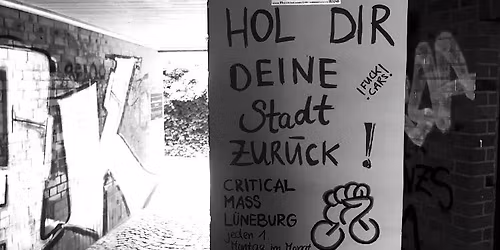 HOL DIR
DEINE
Stadt
ZURÜCK!
! FUCK!
CARS!
CRITICAL
MASS
LÜNEBURG
jeden 1
Montag im Monat